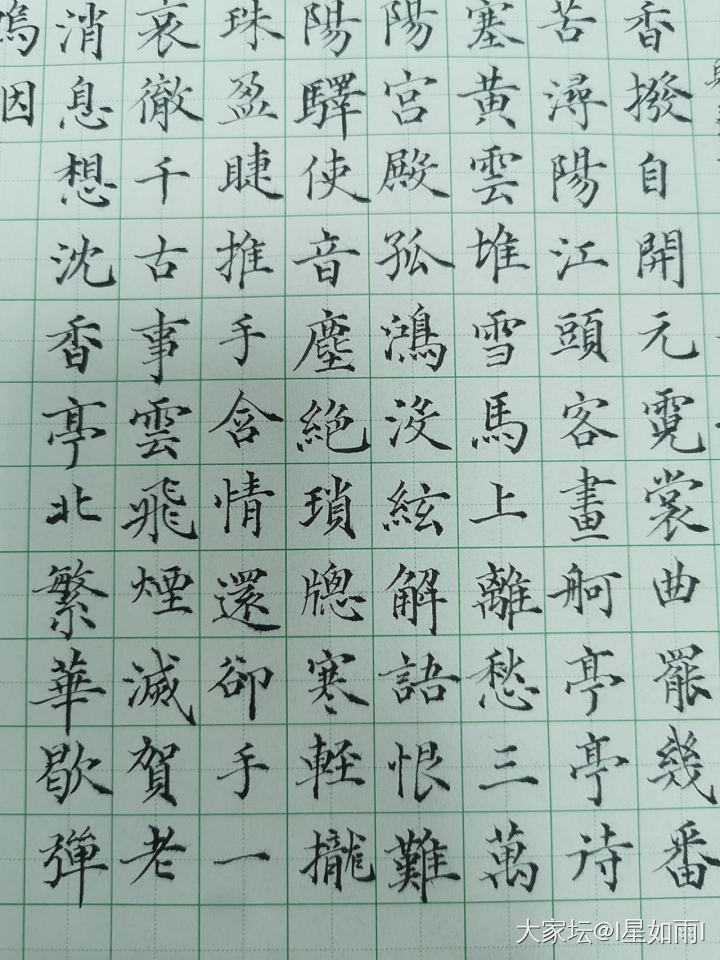 香撥自開元霓裳曲罷幾番
苦潯陽江頭客畫舸亭亭待
塞黃雲堆雪馬上離愁三萬
陽宮殿孤鴻沒絃解語恨難
陽驛使音塵絕瑣牕寒輕攏
珠盈睫推手含情還卻手一
哀徹千古事雲飛煙滅賀老
消息想沈香亭北繁華歇彈
大家坛@l星如雨l